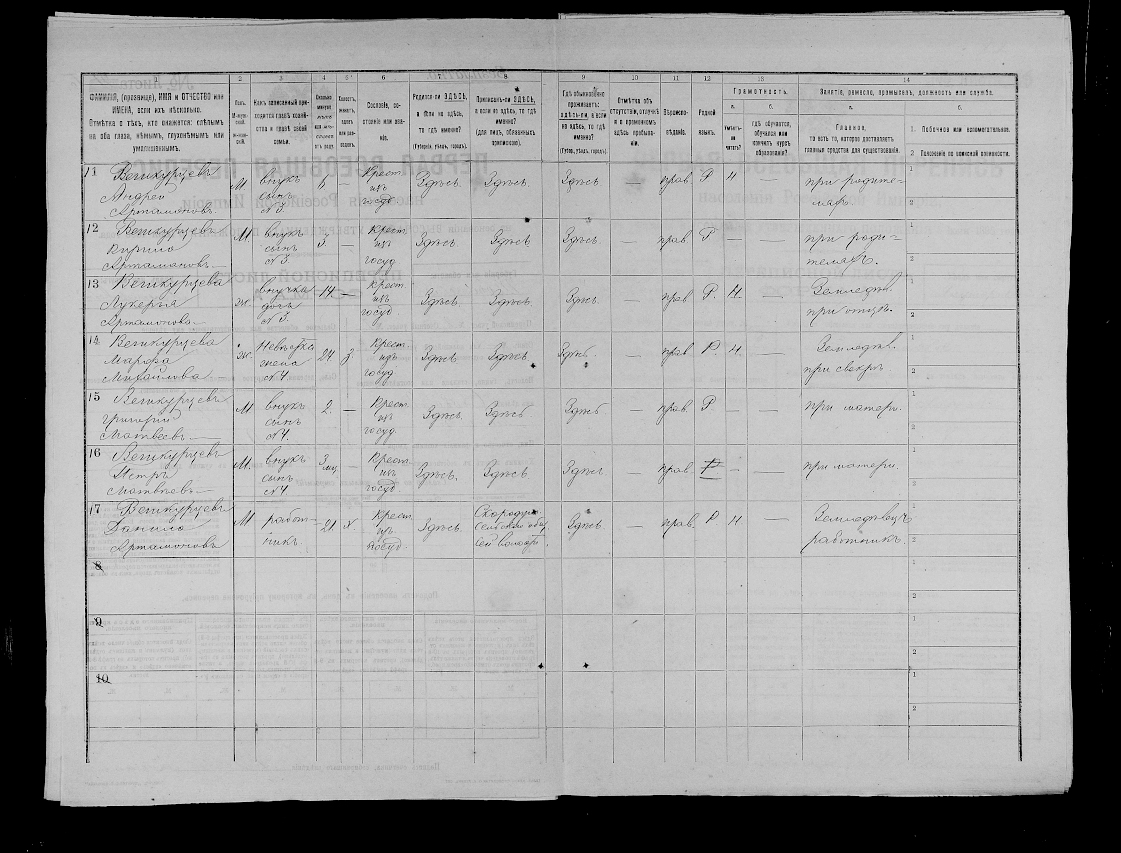 1 2 3 4 5 6 7 8 9 10 11 12 13 14
ФАМИЛІЯ, (прозвище), ИМЯ и ОТЧЕСТВО или
ИМЕНА, если ихъ нѣсколько.
Отмѣтка о тѣхъ, кто окажется: слѣпымъ
на оба глаза, нѣмымъ, глухонѣмымъ или
умалишеннымъ.
Полъ.
М-мужской.
Ж-женскій.
Какъ записанный приходится главѣ хозяйства и главѣ своей
семьи.
Сколько
минуло
лѣтъ
или мѣсяцевъ
отъ роду.
Холостъ,
женатъ,
вдовъ
или разведенъ.
Сословіе, состояніе или званіе.
Родился-ли ЗДѢСЬ,
а если не здѣсь,
то гдѣ именно?
(Губернія, уѣздъ, городъ).
Приписанъ-ли ЗДѢСЬ,
а если не здѣсь, то гдѣ
именно?
(для лицъ, обязанныхъ
припискою).
Гдѣ обыкновенно
проживаетъ:
здѣсь-ли, а если
не здѣсь, то гдѣ
именно?
(Губер., уѣздъ, городъ).
Отмѣтка объ
отсутствіи, отлучкѣ
и о временномъ
здѣсь пребываніи.
Вѣроисповѣданіе.
Родной
языкъ.
Грамотность.
а. Умѣетъ-ли
читать?
б. гдѣ обучается,
обучался или
кончилъ курсъ
образованія?
Занятіе, ремесло, промыселъ, должность или служба.
а.
Главное,
то есть то, которое доставляетъ
главныя средства для существованія.
б.
1. Побочное или вспомогательное.
2 Положеніе по воинской повинности.
11 Великурцевъ
Андрей
Артамоновъ М. внукъ
сынъ
№ 3. 6 — Крест.
изъ
госуд. Здѣсь. Здѣсь. Здѣсь — прав. Р Н — при родителяхъ 1 2
12 Великурцевъ
Кирило
Артамоновъ М. внукъ
сынъ
№ 3 3. — Крест.
изъ
госуд Здѣсь Здѣсь Здѣсь — прав Р — — при родителяхъ. 1 2
13 Великурцева
Лукерья
Артамонова Ж. внучка
дочь
№ 3. 14. — Крест.
изъ
госуд. Здѣсь Здѣсь. Здѣсь — прав Р. Н. — Земледѣл.
при отцѣ. 1 2
14 Великурцева
Марфа
Михайлова Ж. Невѣстка
жена
№ 4. 24 з. Крест.
изъ
госуд. Здѣсь Здѣсь Здѣсь — прав Р. Н. — Земледѣл.
при свекрѣ 1 2
15 Великурцевъ
Григорій
Матвѣевъ М. внукъ
сынъ
№ 4. 2. — Крест.
изъ
госуд. Здѣсь Здѣсь Здѣсь — прав. Р — — при матери. 1 2
16 Великурцевъ
Петръ
Матвѣевъ М. внукъ
сынъ
№ 4 3
мц. — Крест.
изъ
госуд. Здѣсь. Здѣсь. Здѣсь — прав. Р — — при матери. 1 2
17 Великурцевъ
Данило
Артамоновъ М работникъ. 21 х Крест
изъ
госуд. Здѣсь сельскаго общ.
сей волости. Здѣсь — прав. Р Н — Земледѣлецъ
работникъ. 1 2
8 1 2
9 1 2
10 1 2